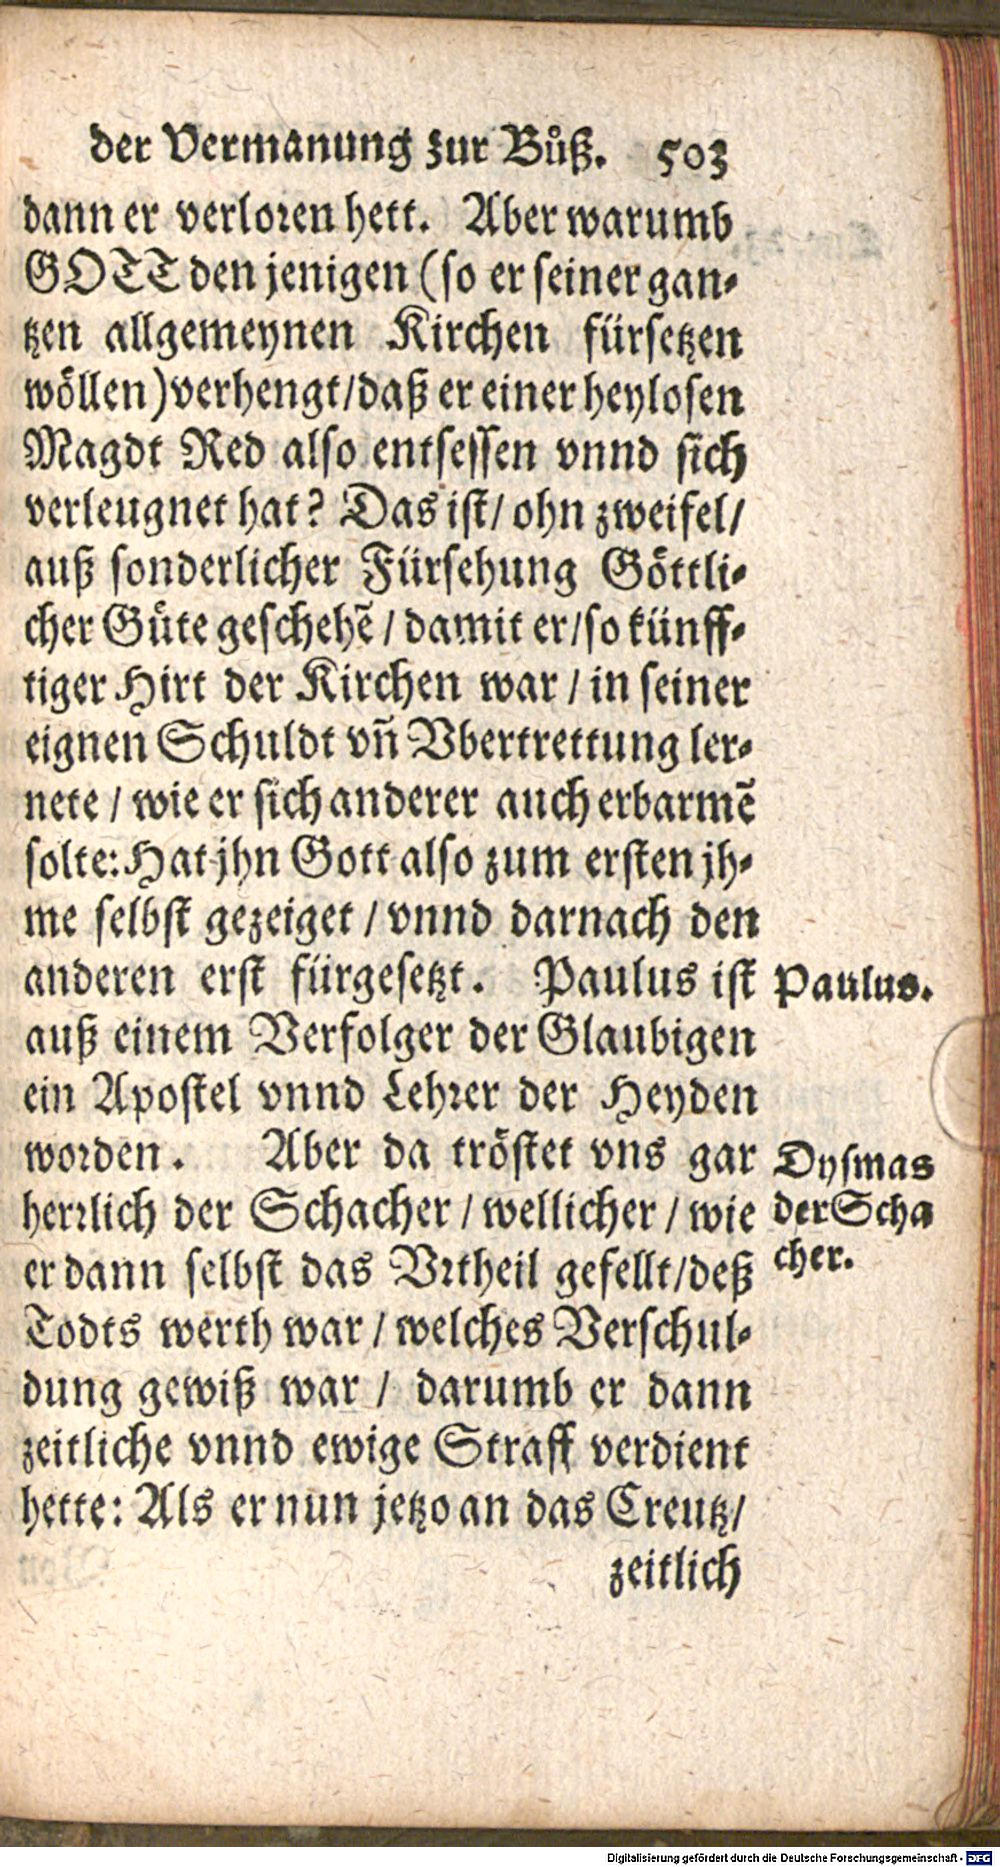 der Vermanung zur Bůß. 503
dann er verloren hett. Aber warumb
GOTT den jenigen (so er seiner gan-
tzen allgemeynen Kirchen fürsetzen
wöllen) verhengt / daß er einer heylosen
Magdt Red also entsessen vnnd sich
verleugnet hat? Das ist / ohn zweifel /
auß sonderlicher Fürsehung Göttli-
cher Güte geschehẽ / damit er / so künff-
tiger Hirt der Kirchen war / in seiner
eignen Schuldt vñ Vbertrettung ler-
nete / wie er sich anderer auch erbarmẽ
solte: Hat jhn Gott also zum ersten jh-
me selbst gezeiget / vnnd darnach den
anderen erst fürgesetzt. Paulus ist
Paulus.
auß einem Verfolger der Glaubigen
ein Apostel vnnd Lehrer der Heyden
worden. Aber da tröstet vns gar
herrlich der Schacher / wellicher / wie
er dann selbst das Vrtheil gefellt / deß
Dysmas
der Scha
cher.
Todts werth war / welches Verschul-
dung gewiß war / darumb er dann
zeitliche vnnd ewige Straff verdient
hette: Als er nun jetzo an das Creutz /
zeitlich
Digitalisierung gefördert durch die Deutsche Forschungsgemeinschaft - DFG